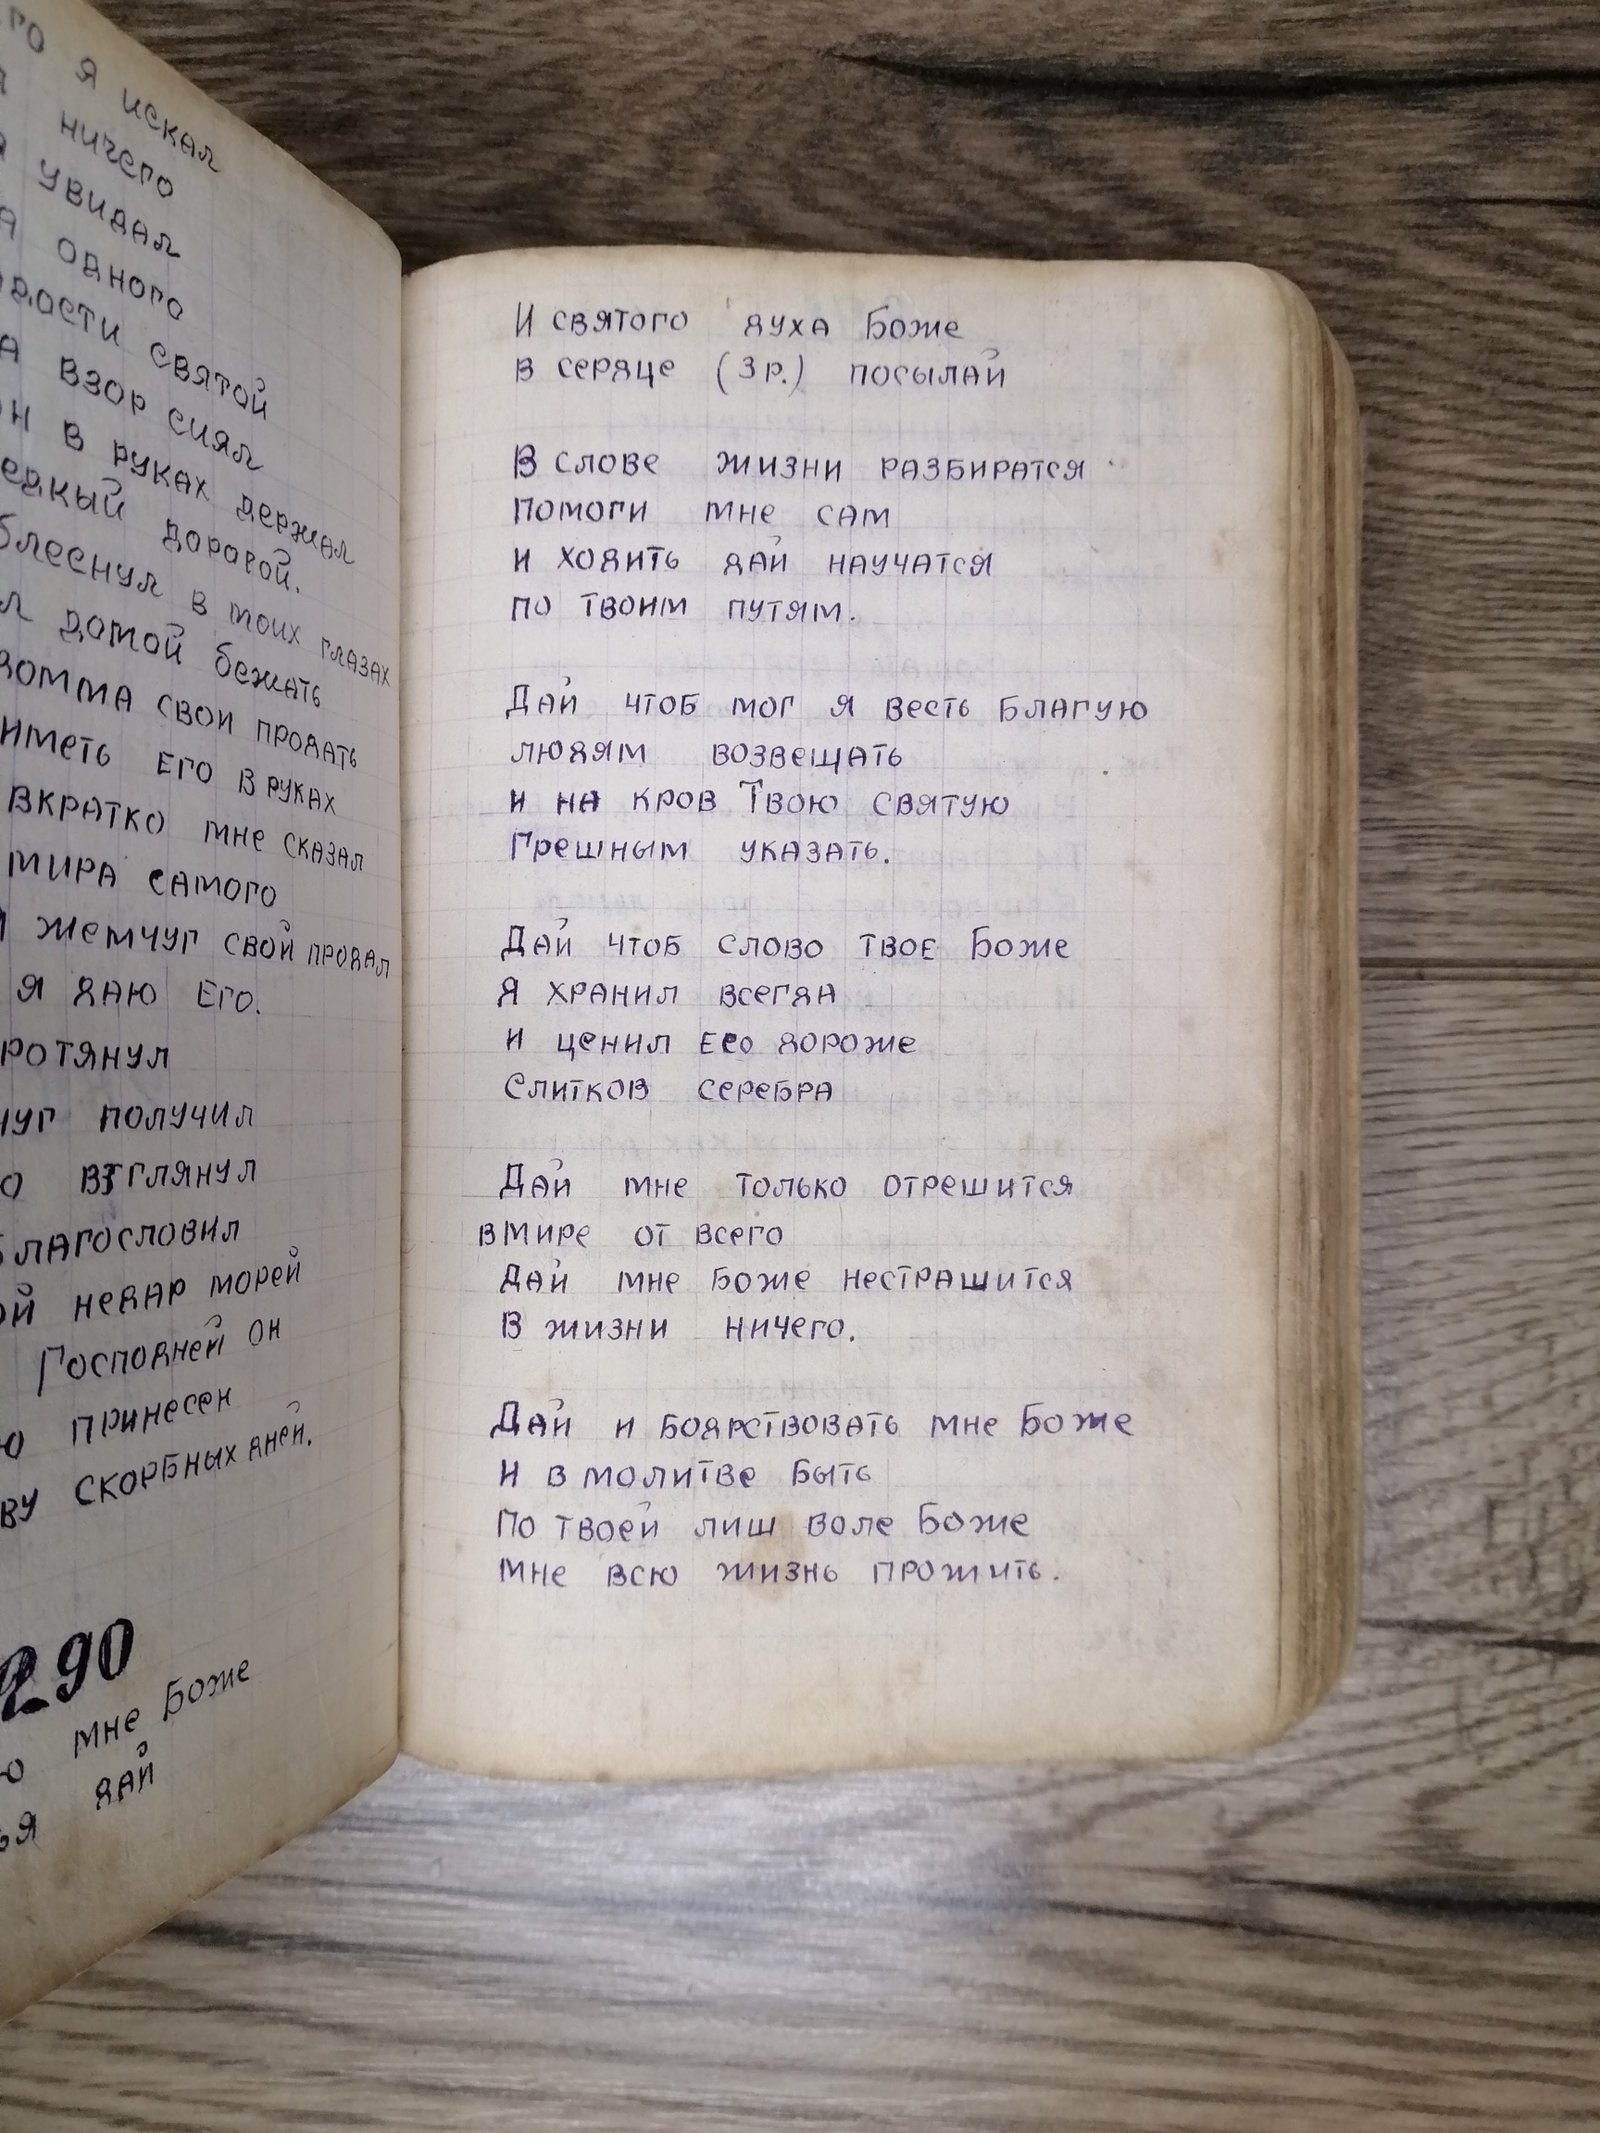 го я искал
ничего
увидал
одного
святой
взор сиял
в руках держал
дорогой.
блеснул в моих глазах
домой бежать
свои продать
иметь Его в руках
вкратко мне сказал
мира самого
жемчуг свой продал
я даю Его.
получил
взглянул
благословил
недар морей
Господней он
принесен
скорбных дней.
290
мне Боже
дай
И святого духа Боже
в сердце (3 р.) посылай
В слове жизни разбиратся
помоги мне сам
и ходить дай научатся
по твоим путям.
Дай чтоб мог я весть благую
людям возвещать
и на кров Твою святую
Грешным указать.
Дай чтоб слово твое Боже
я хранил всегда
и ценил Его дороже
Слитков серебра
Дай мне только отрешится
в мире от всего
Дай мне Боже нестрашится
В жизни ничего.
Дай и бодрствовать мне Боже
и в молитве быть
По твоей лиш воле Боже
мне всю жизнь прожить.